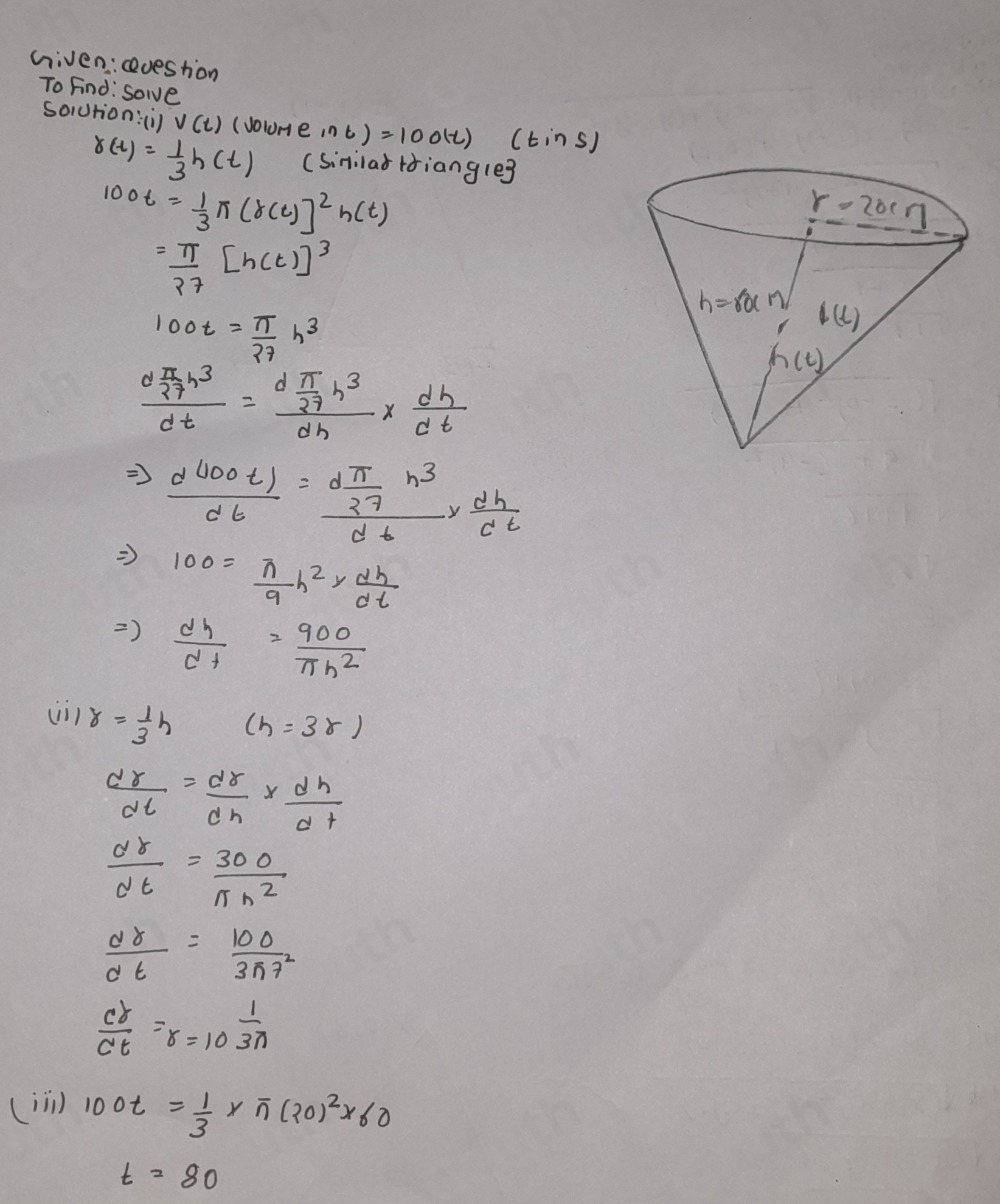 Given: Question
To Find: Solve
Solution: (i) V(t) (Volume in t) = 100(t) (t in s)
r(t) = 1/3 h(t) (Similar triangle}
100t = 1/3 π (r(t)]² h(t)
= π/27 [h(t)]³
100t = π/27 h³
d π/27 h³ / dt = d π/27 h³ / dh × dh/dt
⇒ d(100t)/dt = d π/27 h³ / dt × dh/dt
⇒ 100 = π/9 h² × dh/dt
⇒ dh/dt = 900/πh²
(ii) r = 1/3 h (h = 3r)
dr/dt = dr/dh × dh/dt
dr/dt = 300/πh²
dr/dt = 100/3πr²
dr/dt = r = 10 1/3π
(iii) 100t = 1/3 × π (20)² × 60
t = 80
r = 20cm
h(t)